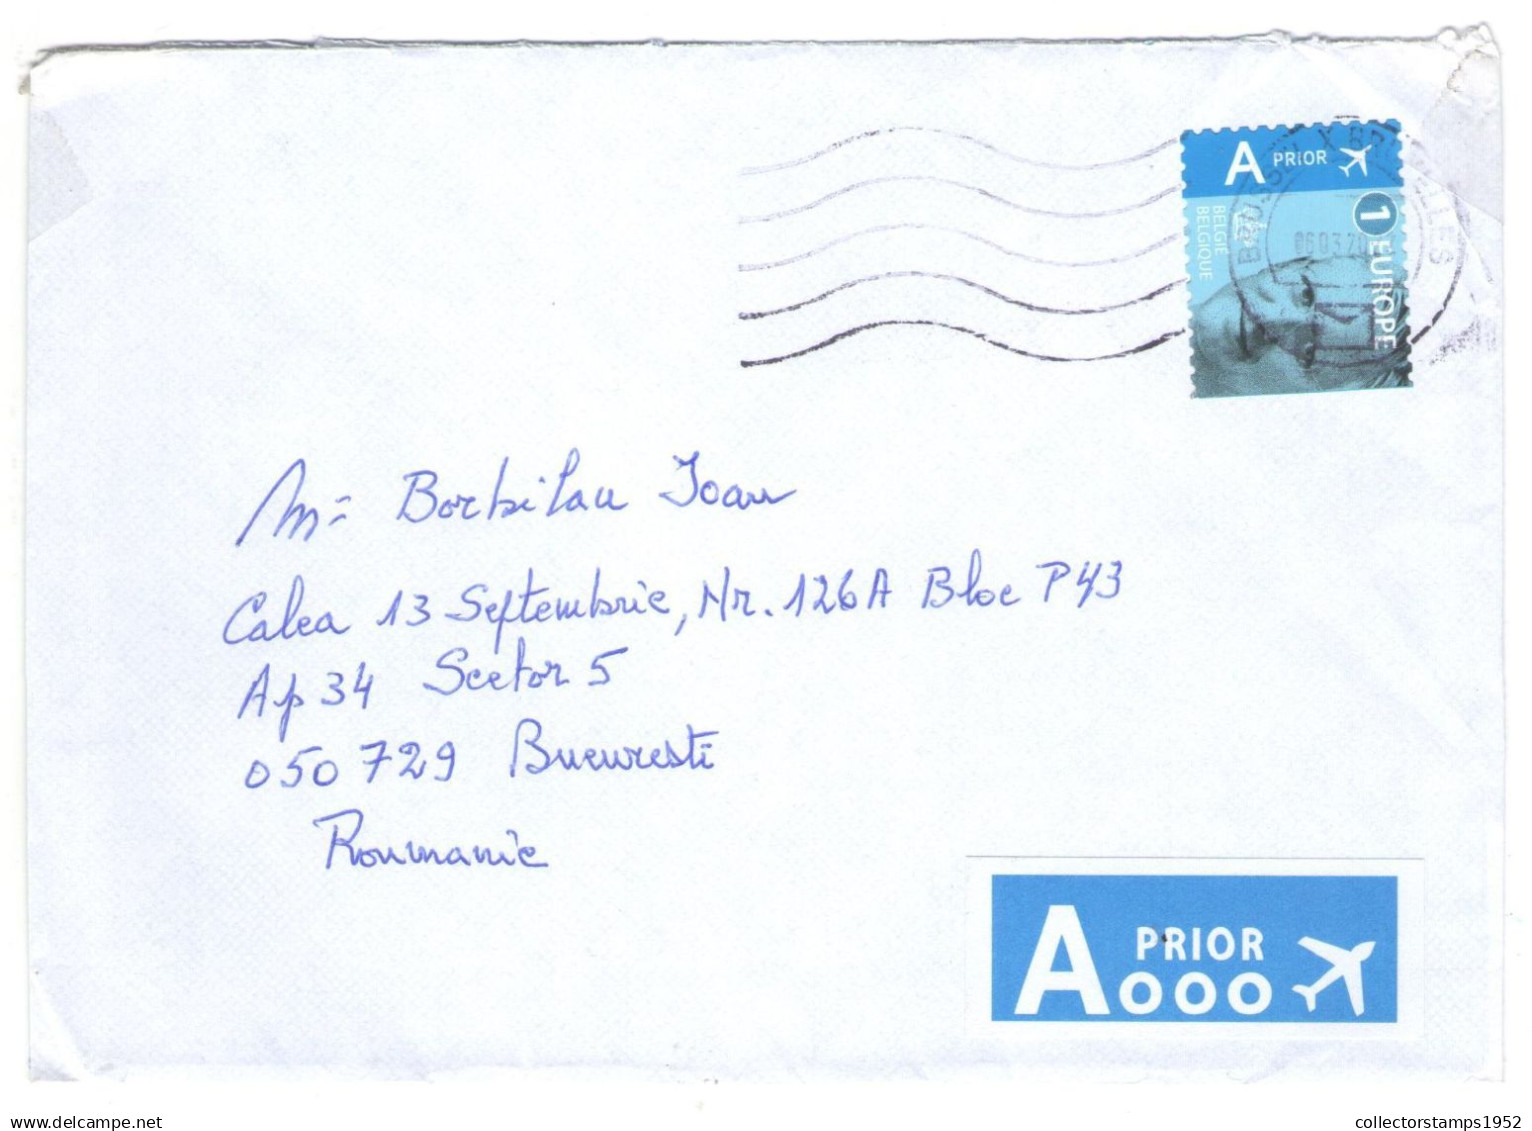 A PRIOR
1 EUROPE
BELGIE
BELGIQUE
BRUSSEL X BRUXELLES
06 03 20
Mr Borbilau Ioan
Calea 13 Septembrie, Nr. 126A Bloc P43
Ap 34 Sector 5
050729 Bucuresti
Roumanie
A PRIOR
collectorstamps1952